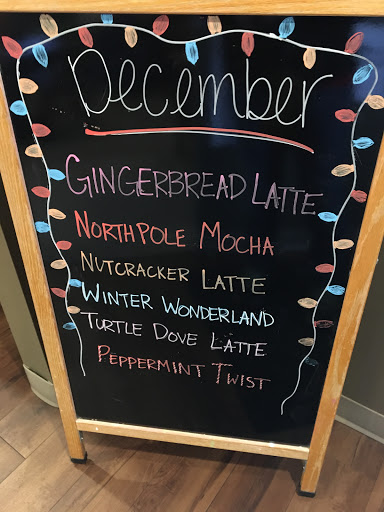 December
GINGERBREAD LATTE
NORTHPOLE MOCHA
NUTCRACKER LATTE
WINTER WONDERLAND
TURTLE DOVE LATTE
PEPPERMINT TWIST